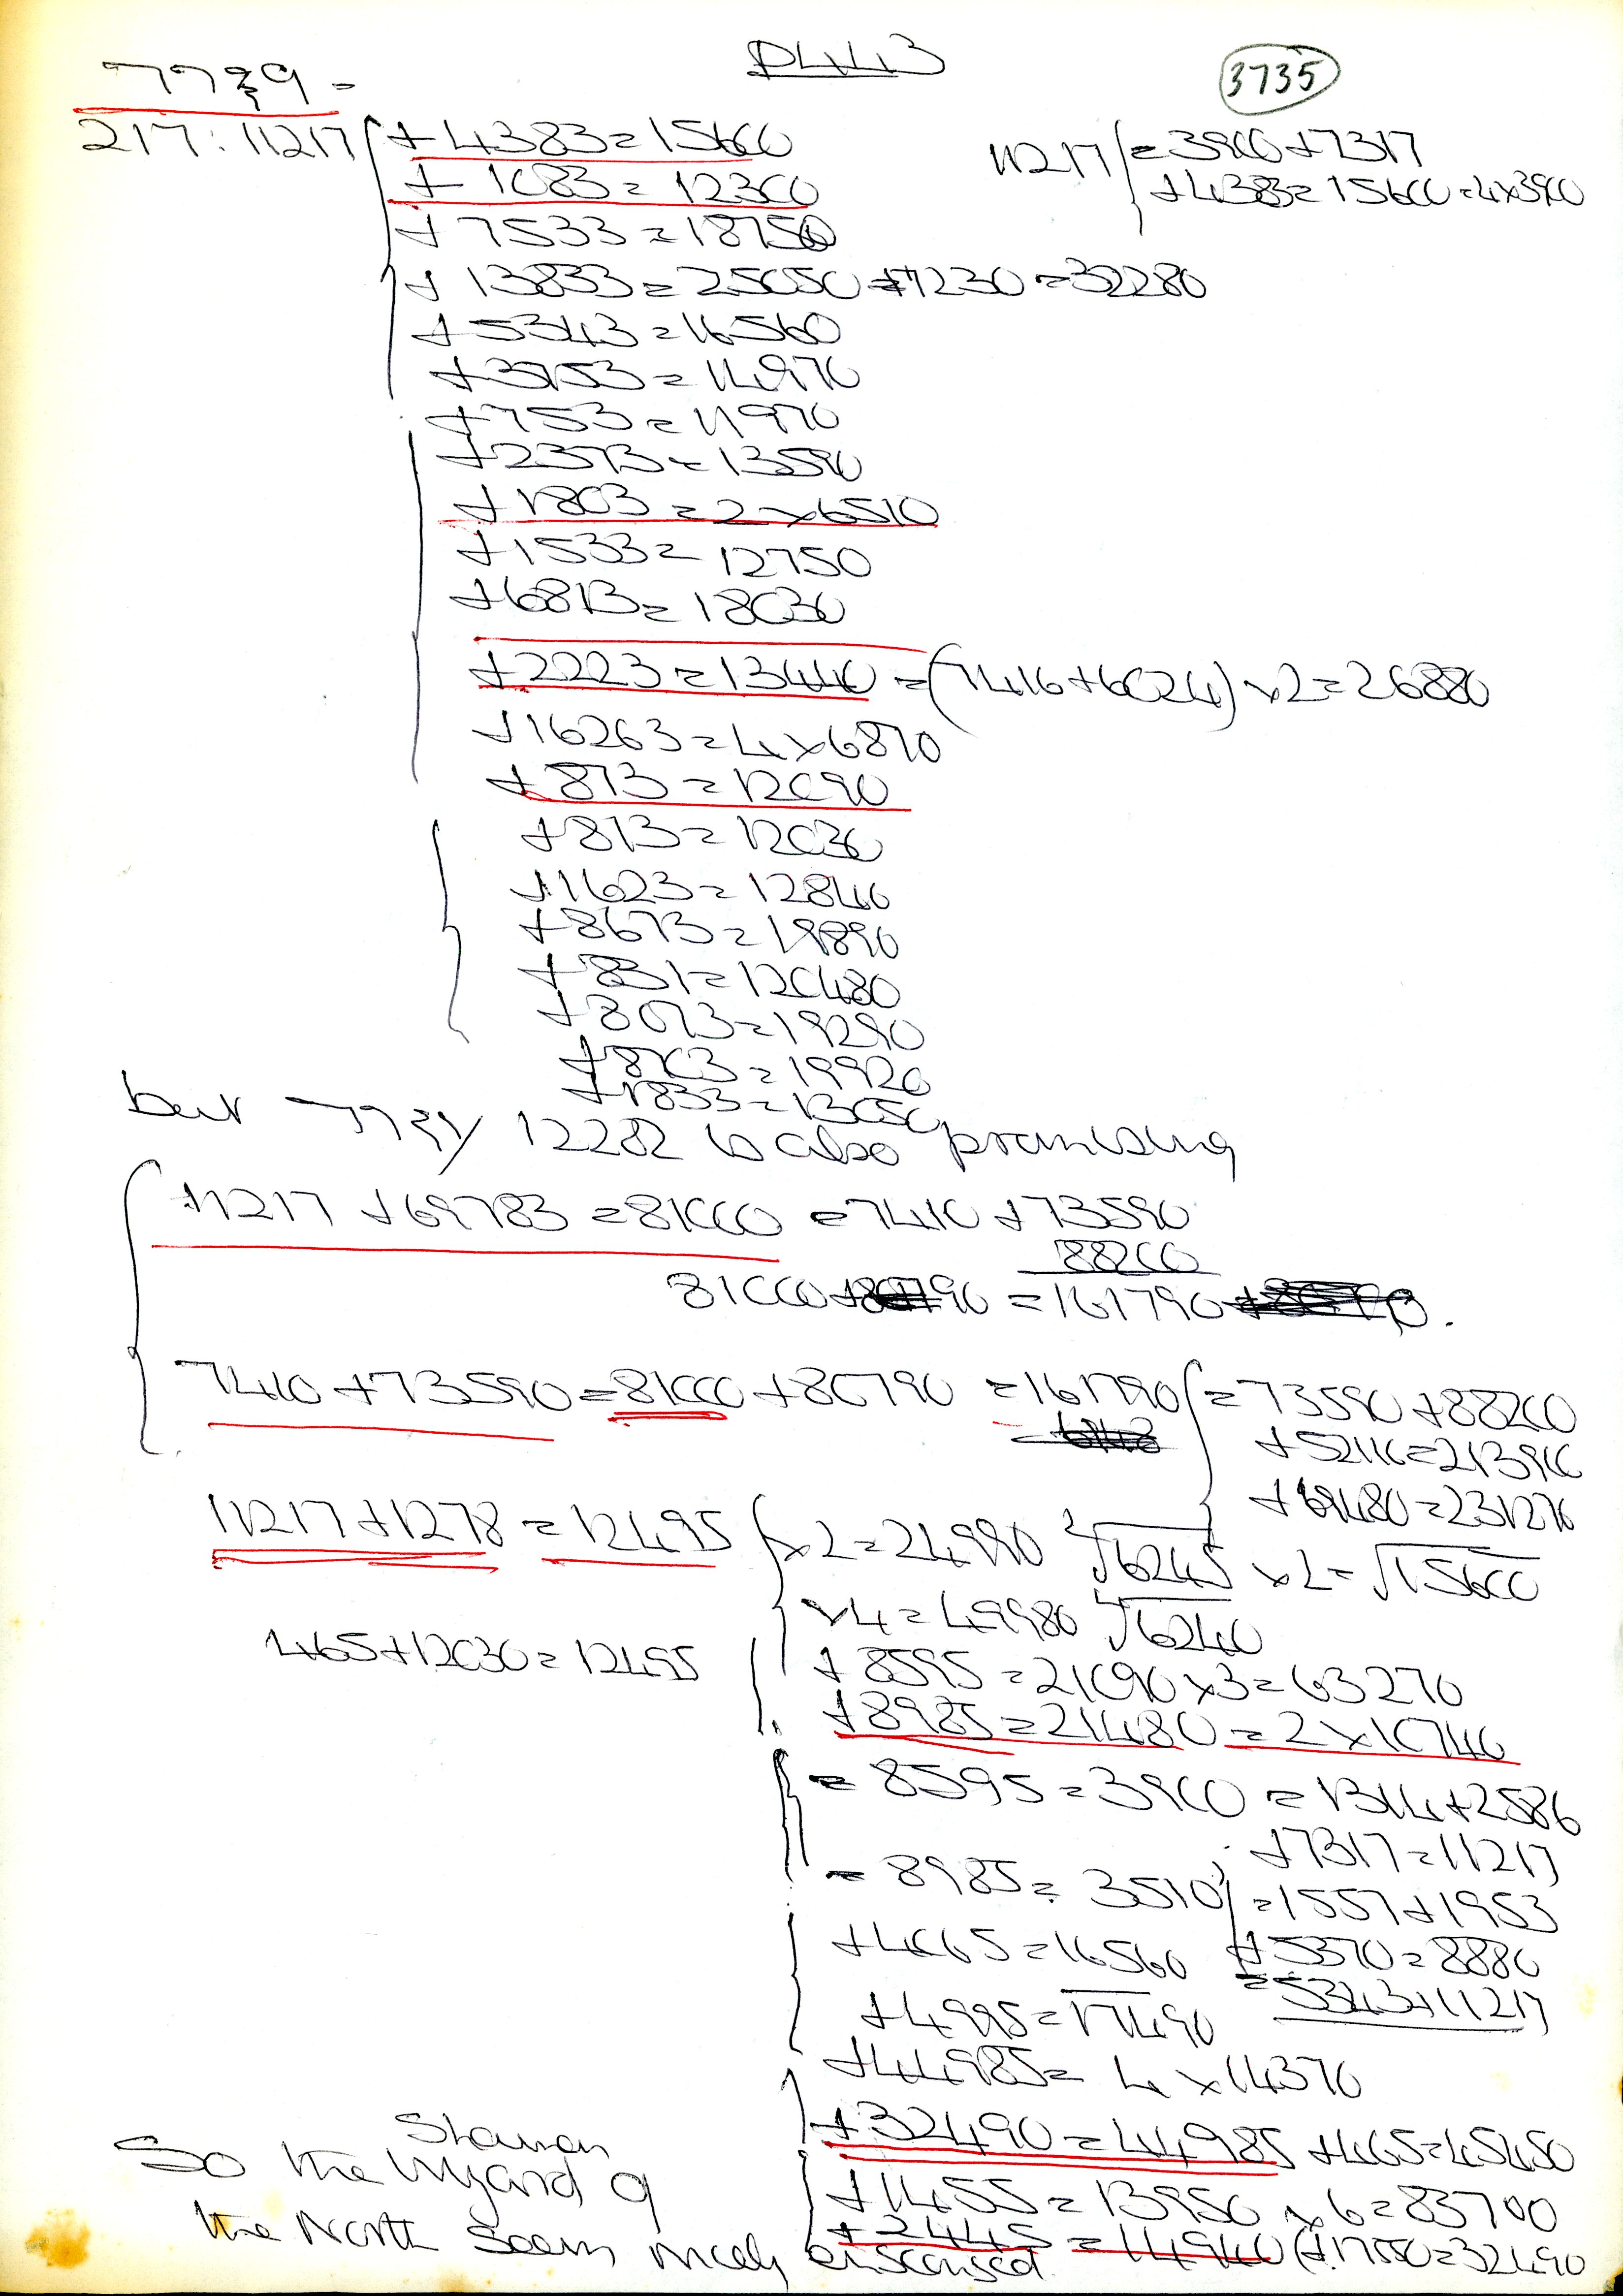 P443
3735
217 : 11217
+ 4383 = 15600
11217 = 3900 + 7317
+ 1083 = 12300
+ 4383 = 15600 = 4 x 3900
+ 7533 = 18750
+ 13833 = 25050 + 7230 = 32280
+ 5343 = 16560
+ 3753 = 14970
+ 753 = 11970
+ 2373 = 13590
+ 1803 = 2 x 6510
+ 1533 = 12750
+ 6813 = 18030
+ 2223 = 13440 = (7416 + 6024) x 2 = 26880
+ 16263 = 4 x 6870
+ 873 = 12090
+ 813 = 12030
+ 1623 = 12840
+ 8673 = 19890
+ 831 = 120480
+ 8073 = 19290
+ 8703 = 19920
+ 1833 = 13050
but 12282 is also promising
+ 11217 + 69783 = 81000 = 7410 + 73590
88200
81000 + 90 = 161790
7410 + 73590 = 81000 + 80790 = 161790 = 73590 + 88200
+ 52116 = 213906
+ 69480 = 231270
11217 + 1278 = 12495 x 2 = 24990 ²√6245 x 2 = √15600
x 4 = 49980 √6240
465 + 12030 = 12495
+ 8595 = 21090 x 3 = 63270
+ 8985 = 21480 = 2 x 10740
- 8595 = 3900 = 1314 + 2586
+ 7317 = 11217
- 8985 = 3510 = 1557 + 1953
+ 4065 = 16560 + 5370 = 8880
= 5343 + 11217
+ 4995 = 17490
+ 44985 = 4 x 14370
+ 32490 = 44985 + 465 = 45450
+ 1455 = 13950 x 6 = 83700
+ 2445 = 14940 (+ 17550 = 32490
Shaman
So the Wizard of
the North seems nicely ensconsed.